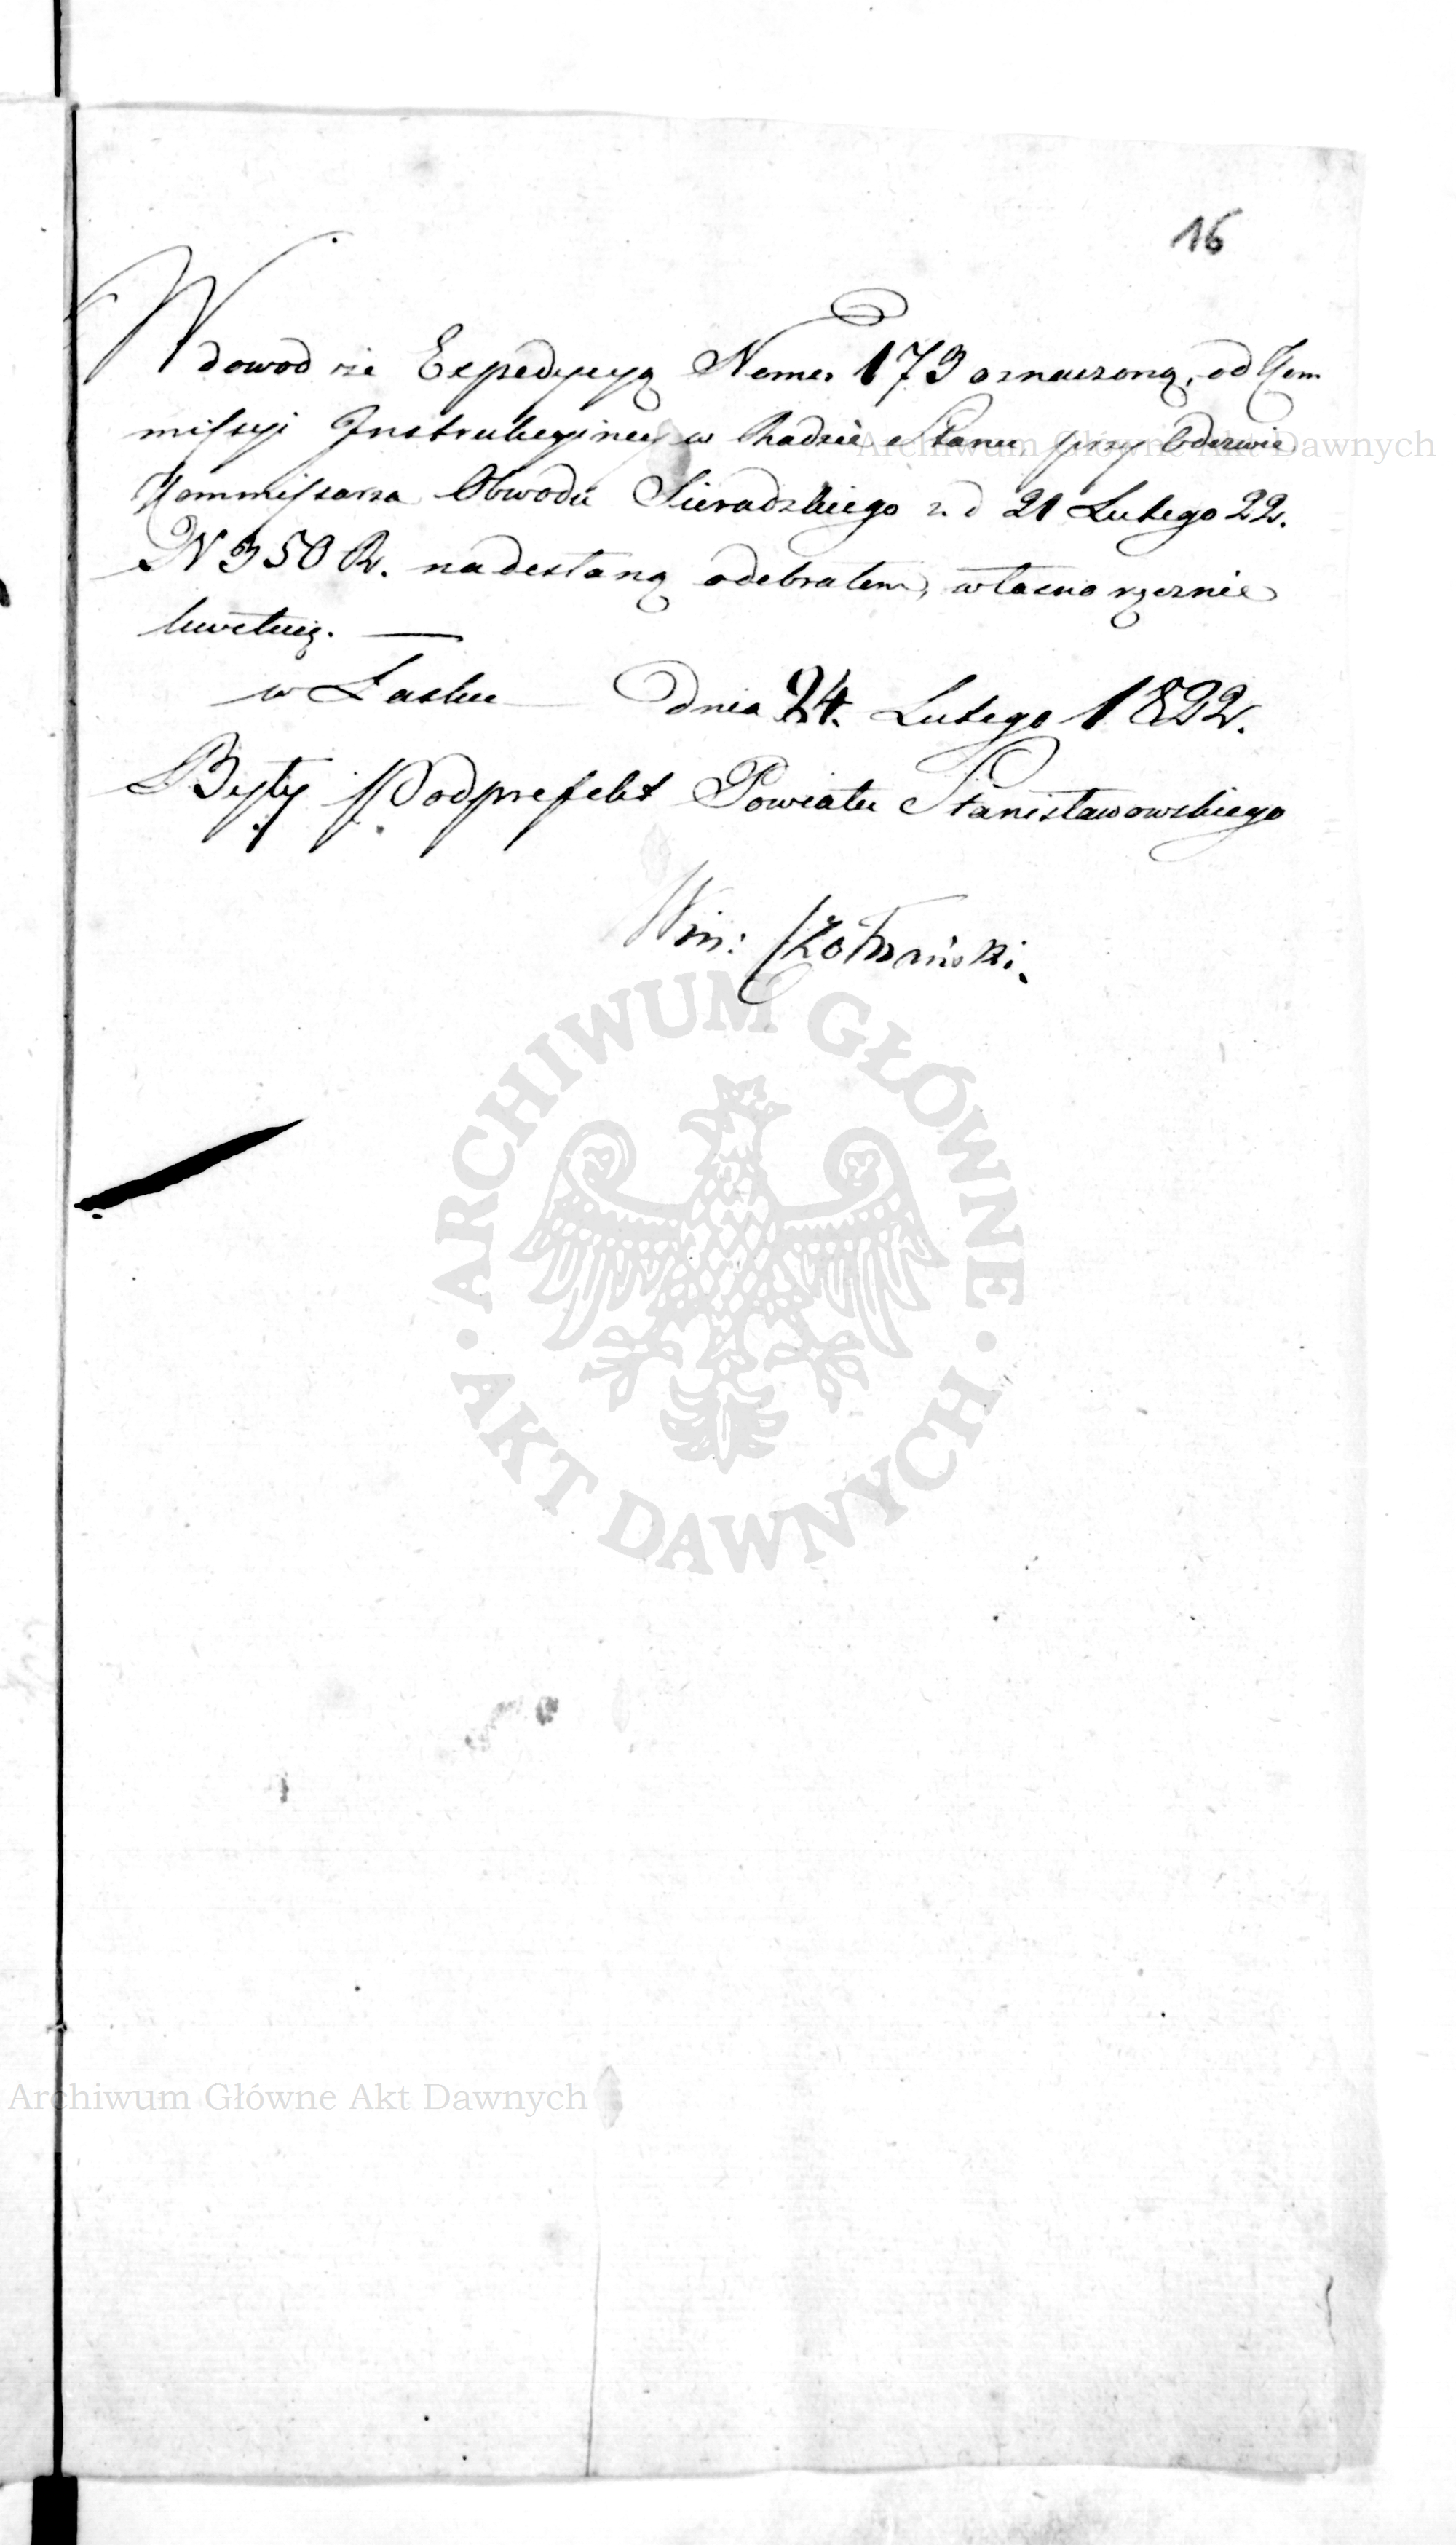 16
W dowod że Expedycyą Nemer 173 oznaczoną, od Kom
missyi Instrukcyiney w Radzie Stanu przy Odezwie
Kommissarza Obwodu Sieradzkiego z d 21 Lutego 22.
N 350 R. nadesłaną odebrałem, własno ręcznie
kwetuię. —
w Lasku Dnia 24. Lutego 1822.
Były Podprefekt Powiatu Stanisławowskiego
Win:
Archiwum Główne Akt Dawnych
ARCHIWUM GŁÓWNE
AKT DAWNYCH
Archiwum Główne Akt Dawnych